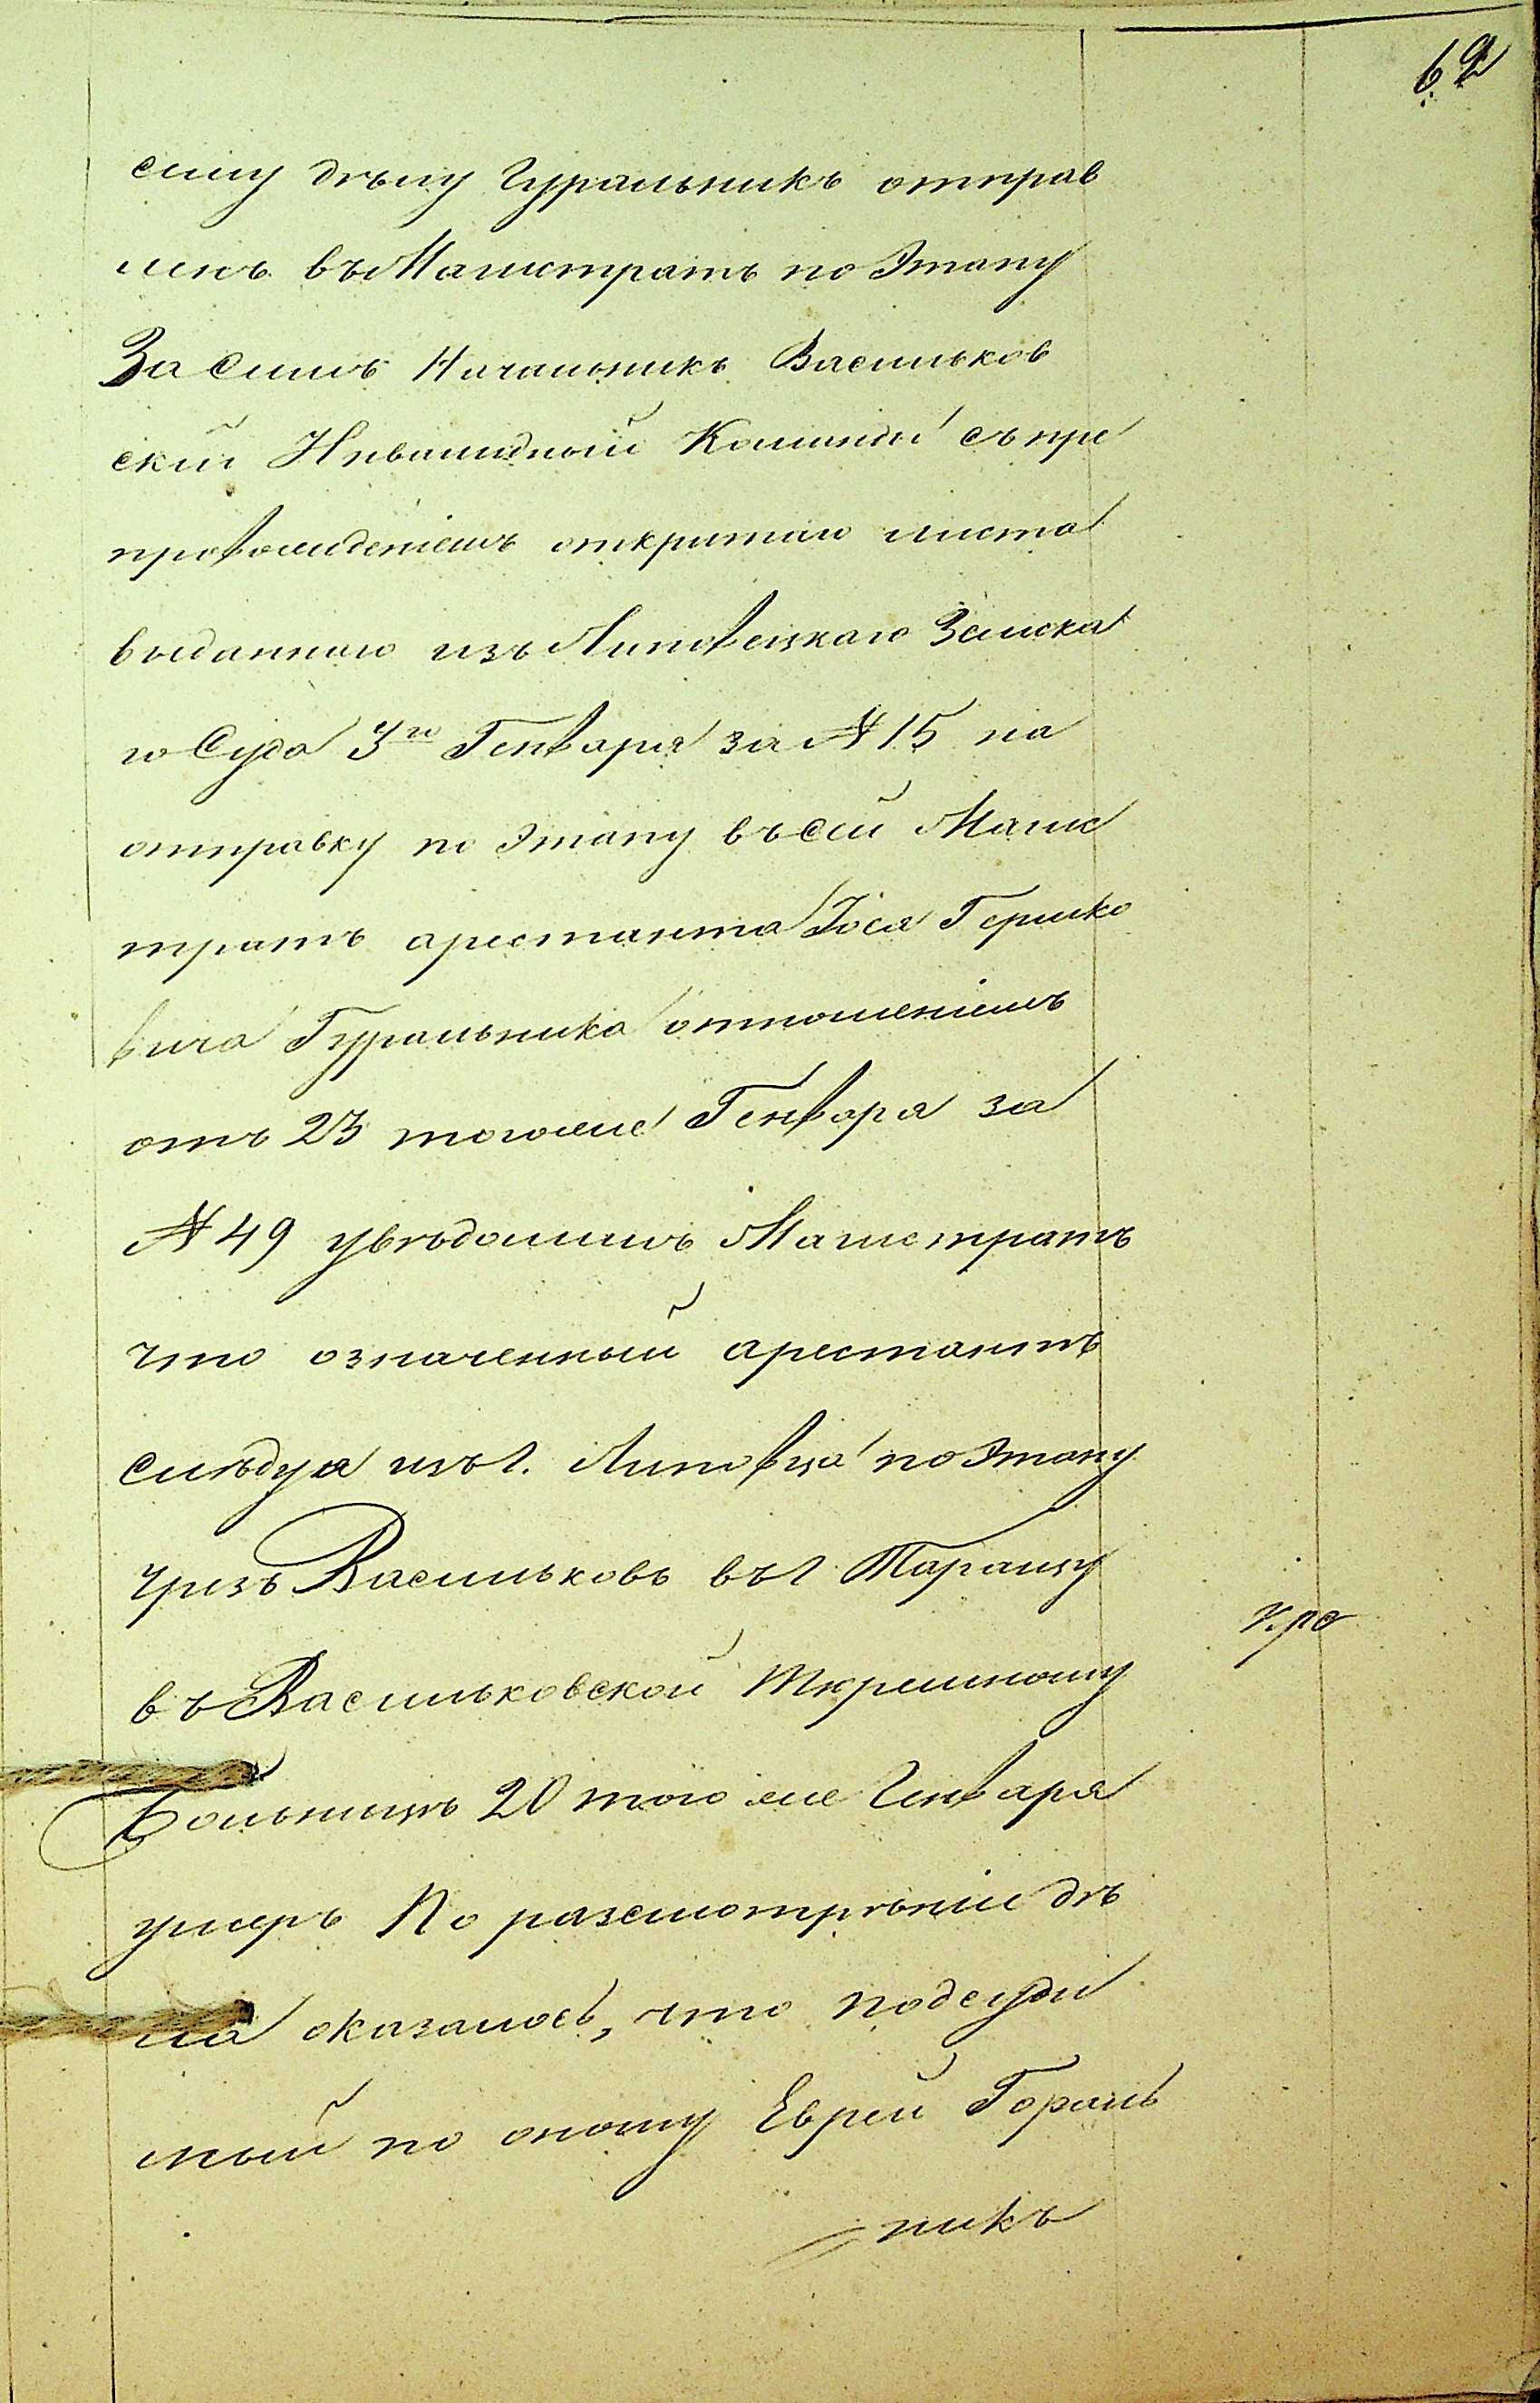 62
сему дѣлу Гуральникъ отправ
ленъ въ Магистратъ по Этапу
За симъ Начальникъ Васильков
ской Инвалидной Команды съ пре
провожденіемъ открытаго листа
выданнаго изъ Липовецкаго Земска
го Суда 3го Генваря за № 15 на
отправку по этапу въ сей Магис
тратъ арестанта Іося Герико
вича Гуральника отношеніемъ
отъ 23 тогоже Генваря за
№ 49 увѣдомилъ Магистратъ
что означенный арестантъ
слѣдуя изъ г. Липовца по Этапу
чрезъ Васильковъ въ г Таращу
въ Васильковской Тюремному
Больницѣ 20 того же Генваря
умеръ По разсмотрѣніе дѣ
ла оказалось, что подсуди
мый по оному Еврей Гораль
никъ